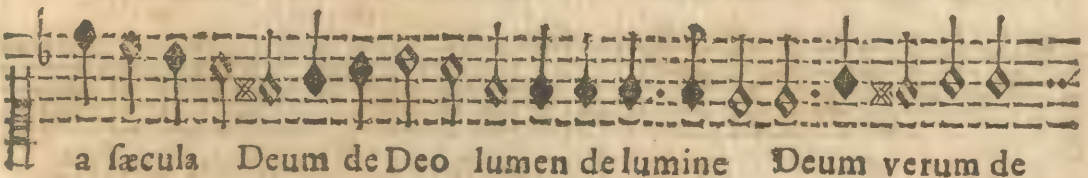 a ſæcula Deum de Deo lumen de lumine Deum verum de